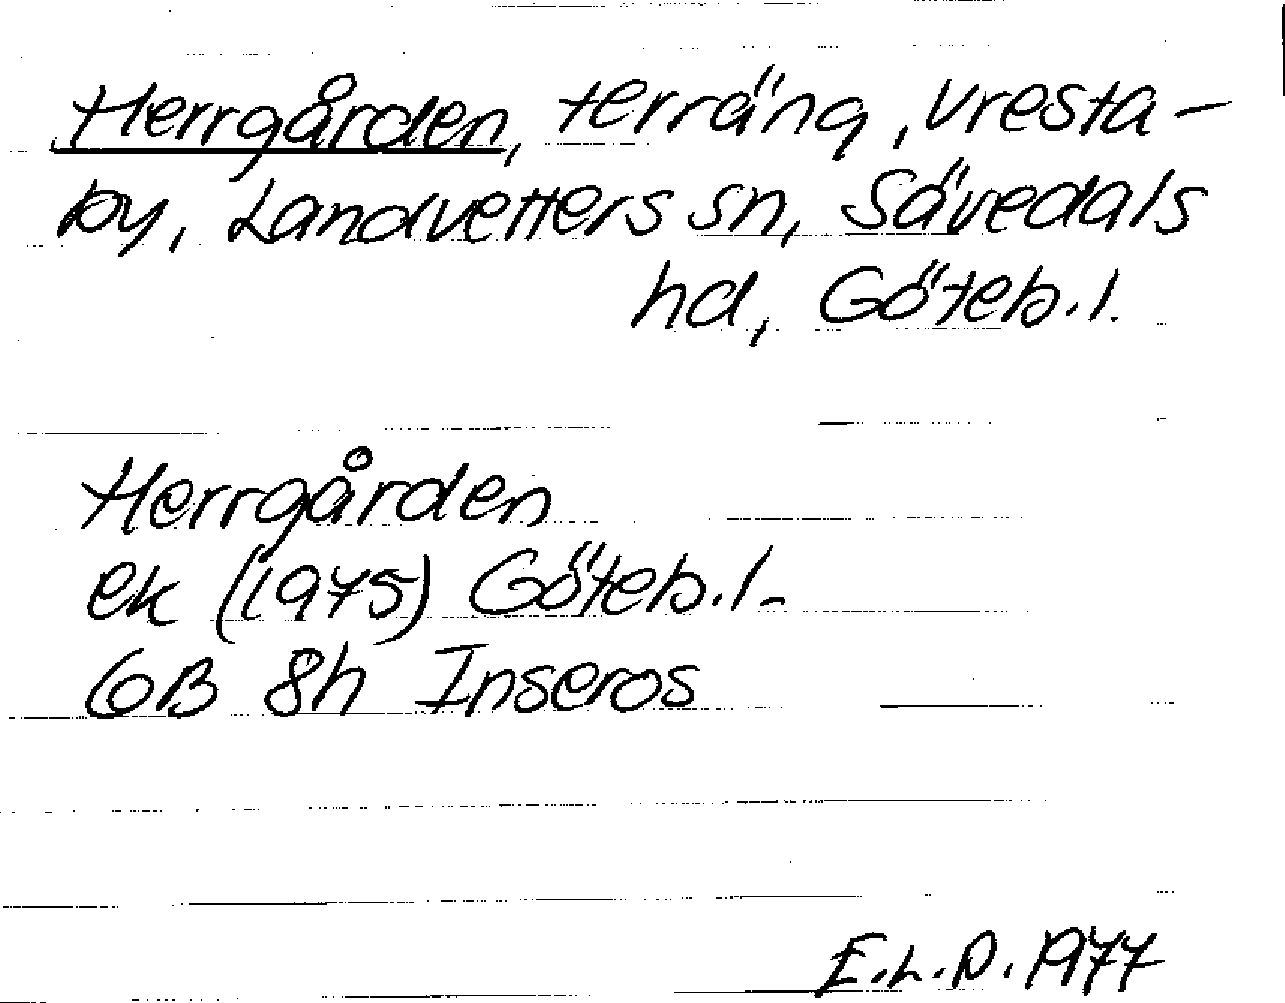 Herrgården, terräng, Vresta-
by, Landvetters sn, Sävedals
hd, Göteb.l.
Herrgården
ek (1975) Göteb.l.
6B 8h Inseros
E.L.D. 1977